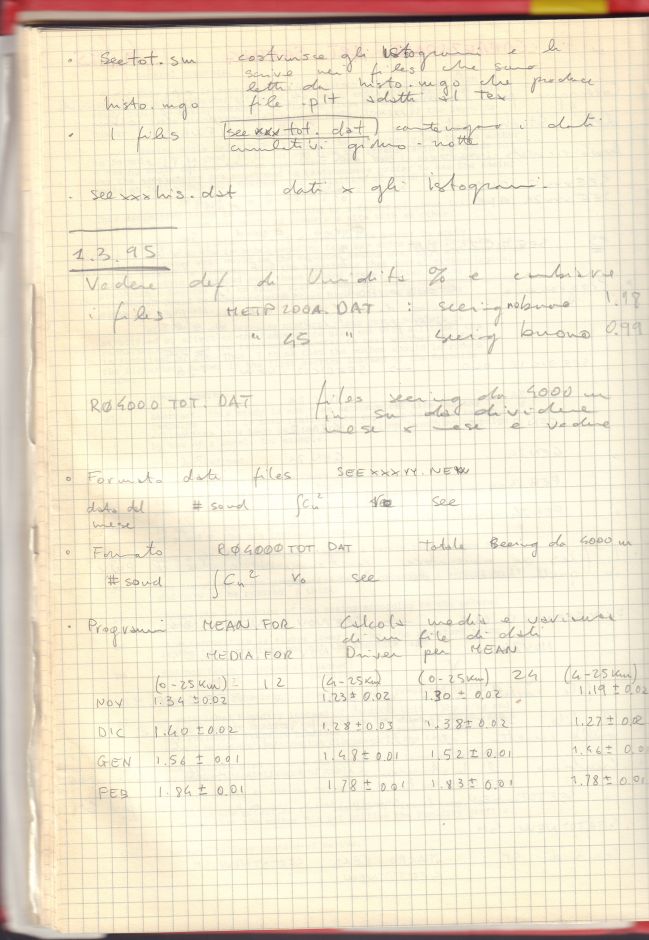 • Seetot.sm costruisce gli istogrammi e li
scrive nei files che sono
letti da histo.mgo che produce
histo.mgo file .plt adatti al Tex
• I files see xxx tot. dat contengono i dati
cumulativi giorno - notte
• see xxx his. dat dati x gli istogrammi.
1.3.95
Vedere def di Umidità % e cambiare
i files METP200A.DAT : seeing no buono 1.18
" 45 " seeing buono 0.99
RØ4000 TOT. DAT files seeing da 4000 m
in su da dividere
mese x mese e vedere
• Formato date files SEEXXXYY.NEW
data del # sond ∫Cn² see
mese
• Formato RØ4000TOT DAT totale Seeing da 4000 m
# sond ∫Cn² r₀ see
• Programmi MEAN.FOR Calcola media e varianza
di un file di dati
MEDIA.FOR Driver per MEAN
(0-25Km) 12 (4-25Km) (0-25Km) 24 (4-25Km)
NOV 1.34 ± 0.02 1.23 ± 0.02 1.30 ± 0.02 1.19 ± 0.02
DIC 1.40 ± 0.02 1.28 ± 0.03 1.38 ± 0.02 1.27 ± 0.02
GEN 1.56 ± 0.01 1.48 ± 0.01 1.52 ± 0.01 1.46 ± 0.0
FEB 1.84 ± 0.01 1.78 ± 0.01 1.83 ± 0.01 1.78 ± 0.01